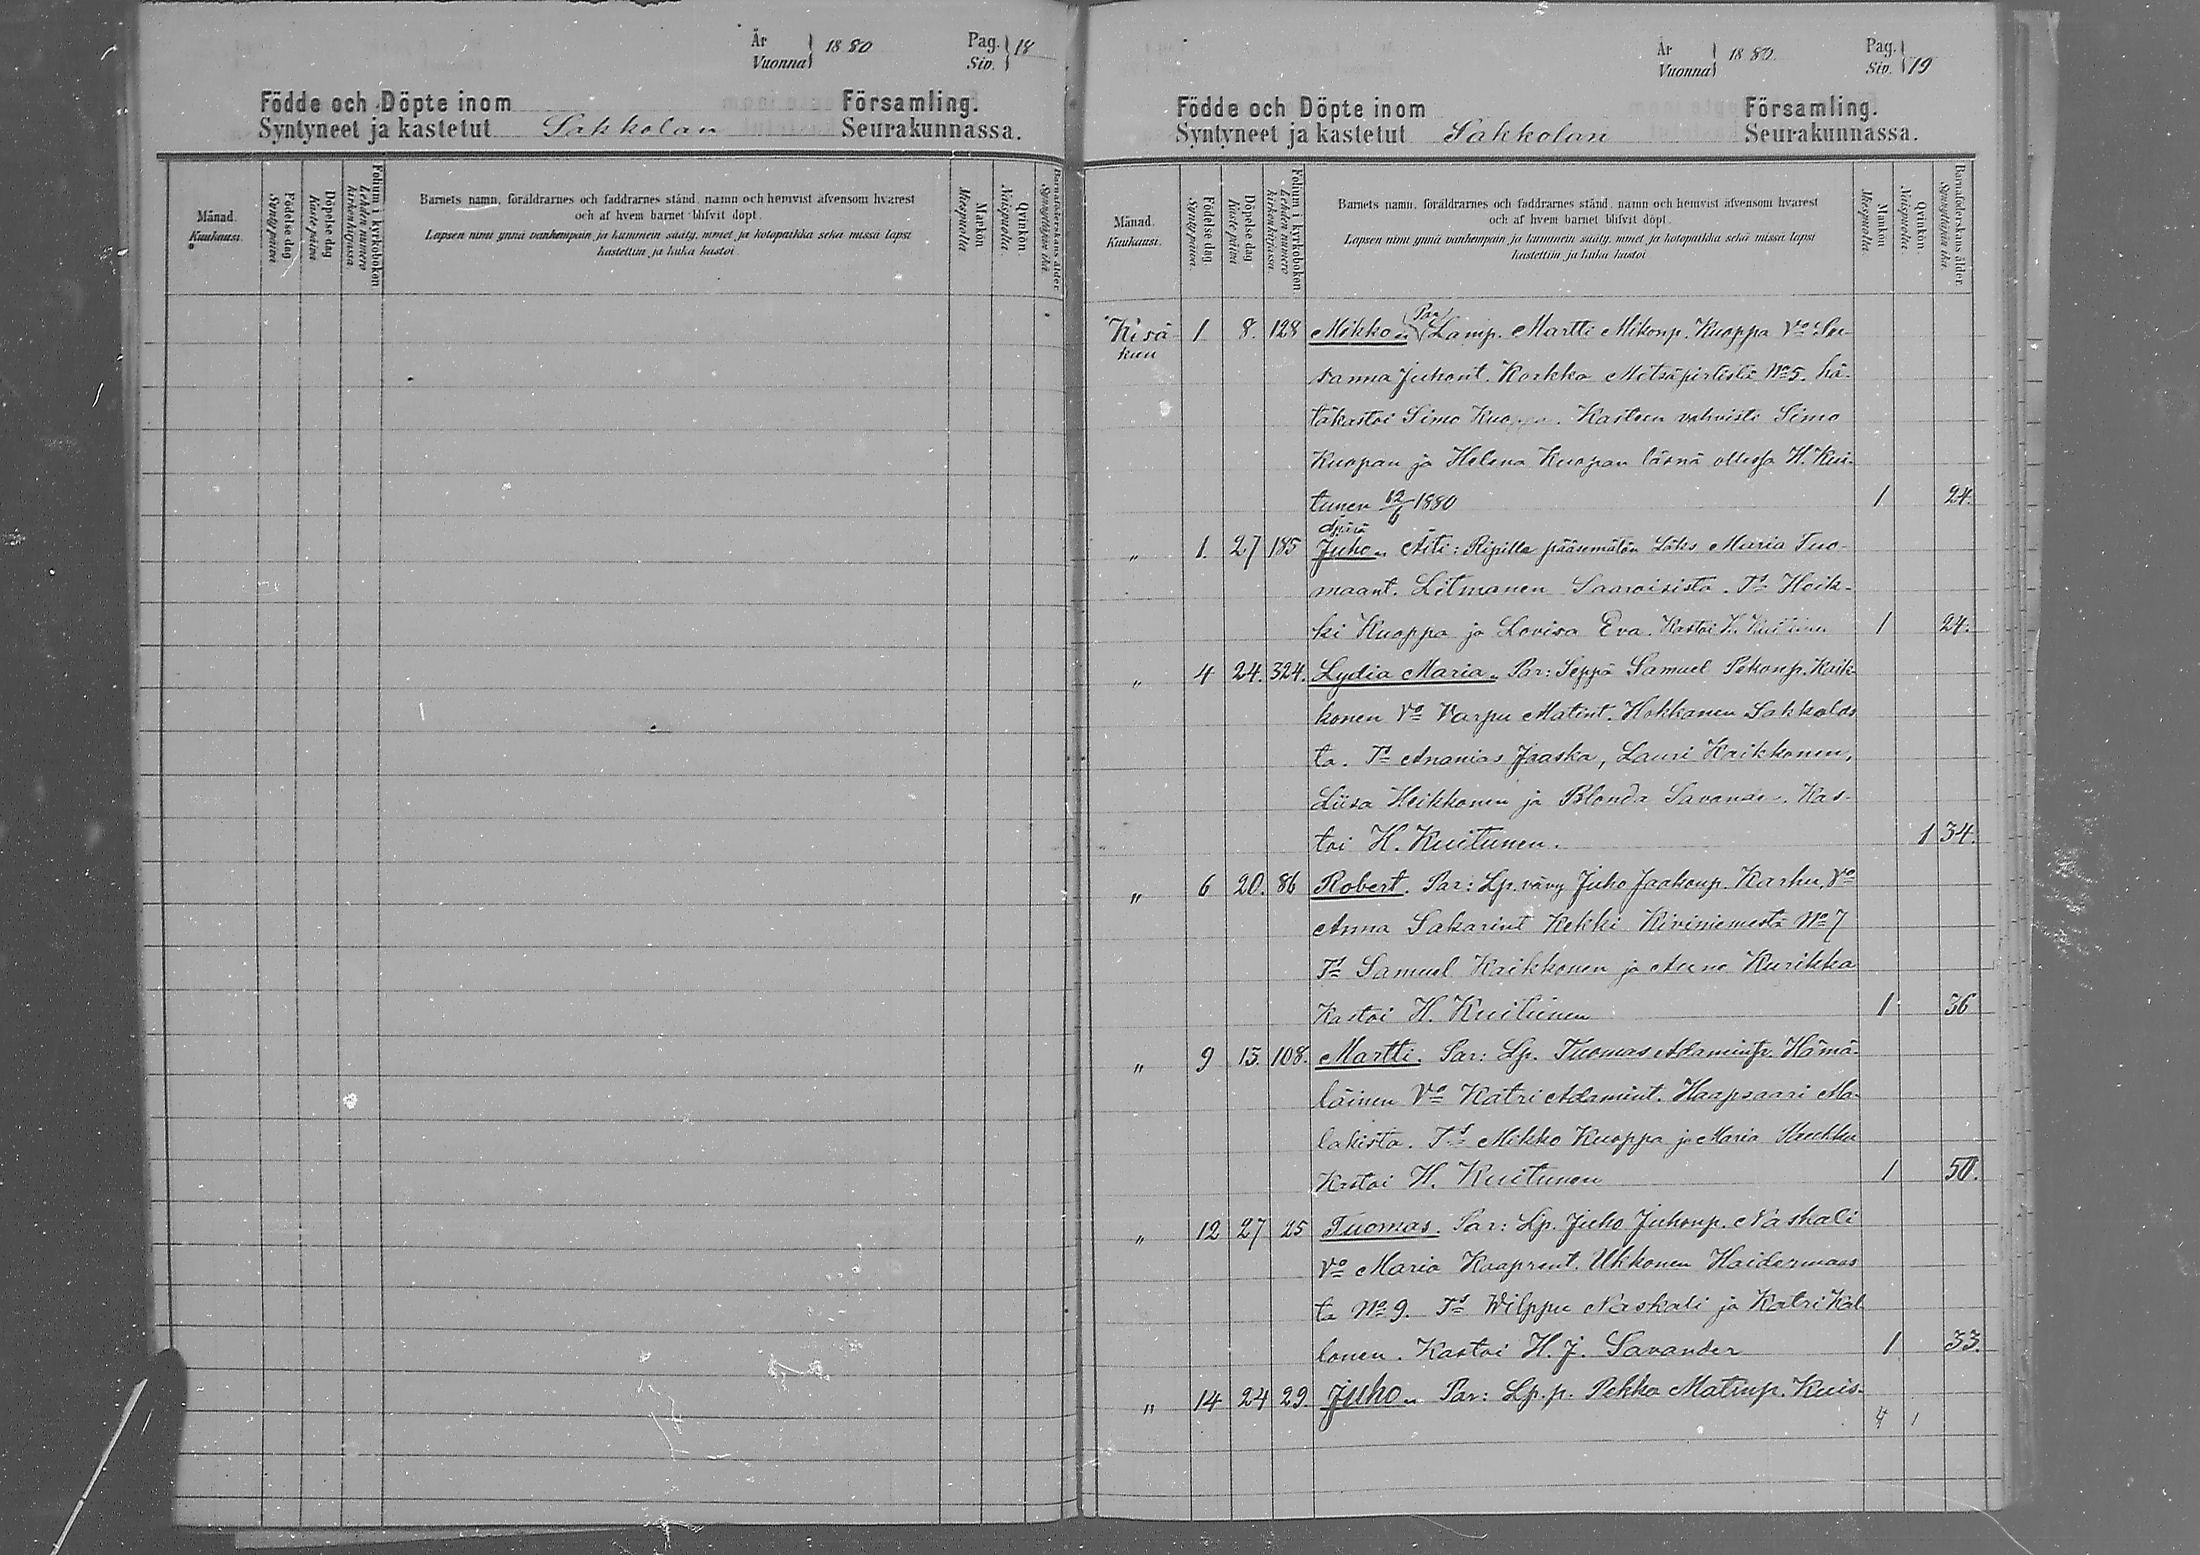 År
Vuonna 1880
Pag.
Siv. 18
Födde och Döpte inom Församling.
Syntyneet ja kastetut Sakkolan Seurakunnassa.
Månad.
Kuukausi.
Födelse dag
Synty päivä
Döpelse dag
Kaste päivä
Folium i kyrkoboken
Lehden numero kirkonkirjassa
Barnets namn, föräldrarnes och faddrarnes stånd, namn och hemvist äfvensom hvarest
och af hvem barnet blifvit döpt.
Lapsen nimi ynnä vanhempain ja kummein sääty, nimet ja kotopaikka sekä missä lapsi
kastettiin ja kuka kastoi.
Mankön
Miespuolia.
Qvinkön.
Naispuolia.
Barnaföderskans ålder
Synnyttäjän ikä
År
Vuonna 1880
Pag.
Siv. 19
Födde och Döpte inom Församling.
Syntyneet ja kastetut Sakkolan Seurakunnassa.
Månad.
Kuukausi.
Födelse dag
Synty päivä
Döpelse dag
Kaste päivä
Folium i kyrkoboken
Lehden numero kirkonkirjassa
Barnets namn, föräldrarnes och faddrarnes stånd, namn och hemvist äfvensom hvarest
och af hvem barnet blifvit döpt.
Lapsen nimi ynnä vanhempain ja kummein sääty, nimet ja kotopaikka sekä missä lapsi
kastettiin ja kuka kastoi
Mankön
Miespuolia.
Qvinkön.
Naispuolia.
Barnaföderskans ålder
Synnyttäjän ikä
Kesä 1 8. 128 Mikko (Par) Lamp. Martti Mikonp. Kuoppa Vo Su-
kuu
sanna Juhont. Korkka Metsäpirtistä No 5. hä-
täkastoi Simo Kuoppa. Kasteen vahvisti Simo
Kuopan ja Helena Kuopan läsnä ollessa H. Kui-
tunen 12/6 1880 1 24.
äpärä
" 1. 27 185 Juho. Äiti: Ripille pääsemätön Maria Tuo-
maant. Litmanen Saaroisista. Ts Heik-
ki Kuoppa ja Lovisa Eva. Kastoi H. Kuitunen 1 24.
" 4 24. 324. Lydia Maria. Par: Seppä Samuel Pekonp. Kaik-
konen Vo Varpu Matint. Hokkanen Sakkolas
ta. Ts Ananias Jaaska, Lauri Kaikkonen,
Liisa Heikkonen ja Blonda Savander. Kas-
toi H. Kuitunen. 1 34.
" 6 20. 86 Robert. Par: Lp. vävy Juho Jaakonp. Karhu, Vo
Anna Sakarint Kekki Kiviniemestä No 7
Ts Samuel Kaikkonen ja Kurikka
Kastoi H. Kuitunen 1 36
" 9 13. 108. Martti. Par: Lp. Tuomas Adaminp. Hämä-
läinen Vo Katri Adamint. Haapsaari Ma-
lakista. Ts Mikko Kuoppa ja Maria
Kastoi H. Kuitunen 1 50.
" 12 27 25 Tuomas. Par: Lp. Juho Juhonp. Naskali
Vo Maria Kaaprent. Ukkonen Haidermaas
ta No 9. Ts Wilppu Naskali ja Katri Kal
lonen. Kastoi H. J. Savander 1 33.
" 14 24 29. Juho. Par: Lp. p. Pekka Matinp. Kuis-
4 1